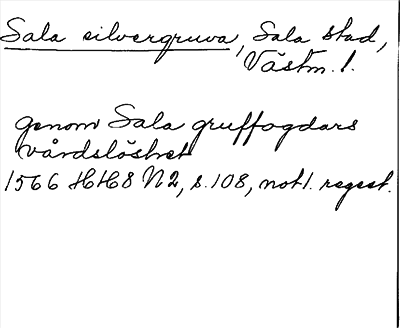 Sala silvergruva, Sala stad,
Västm. l.
genom Sala gruffogdars
vårdslöshet
1566 HH8 N2, s. 108, not 1. regest.